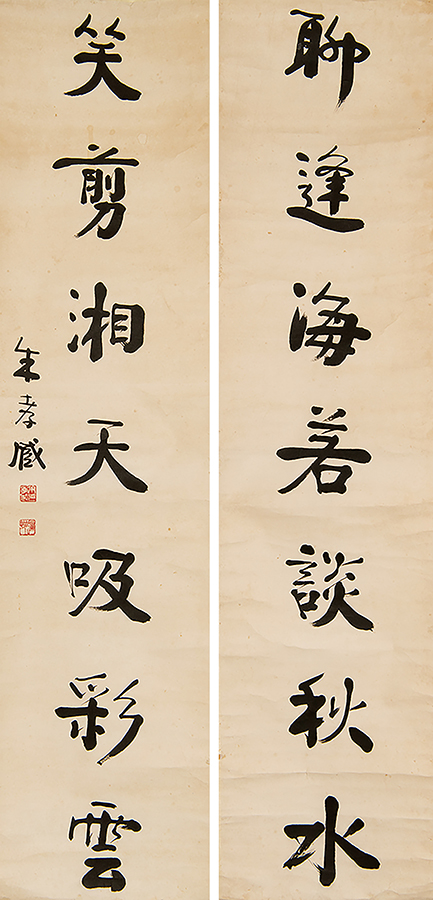 聊逢海若談秋水
笑剪湘天吸彩雲
朱孝臧